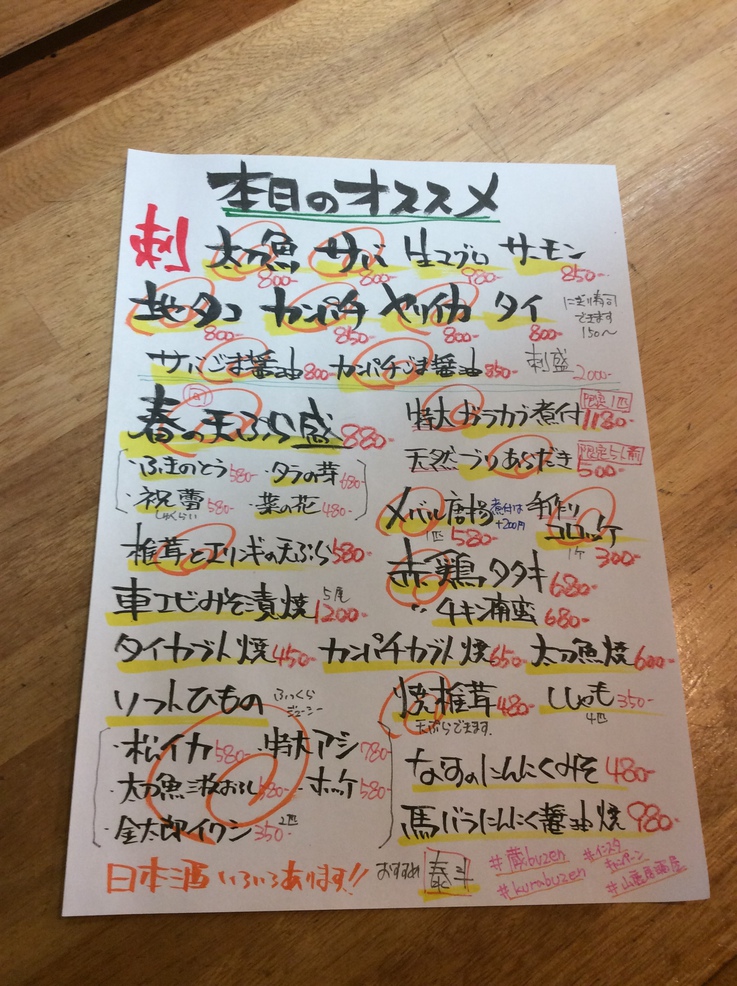 本日のオススメ
刺 太刀魚 800- サバ 800- 生マグロ 980- サーモン 850-
地タコ 800- カンパチ 850- ヤリイカ 800- タイ 800- にぎり寿司できます 150～
サバごま醤油 800- カンパチごま醤油 850- 刺盛 2000-
春の天ぷら盛 880-
・ふきのとう 580- ・タラの芽 680-
・祝蕾 しゅくらい 580- ・菜の花 480-
椎茸とエリンギの天ぷら 580-
車エビみそ漬焼 5尾 1200-
特大ガラカブ煮付 限定1匹 1180-
天然ブリあらだき 500-
メバル唐揚 1匹 580- 煮付は+200円 手作りコロッケ 1ケ 300-
赤鶏タタキ 680-
〃 チキン南蛮 680-
タイカブト焼 450- カンパチカブト焼 650- 太刀魚焼 600-
ソフトひもの ふっくらジューシー
・松イカ 580- ・特大アジ 780-
・太刀魚三枚おろし 580- ・ホッケ 580-
・金太郎イワシ 2匹 350-
焼椎茸 480- 天ぷらできます。 ししゃも 4匹 350-
なすのにんにくみそ 480-
馬バラにんにく醤油焼 980-
日本酒いろいろあります!! おすすめ 泰斗
#蔵buzen #インスタキャンペーン
#kurabuzen